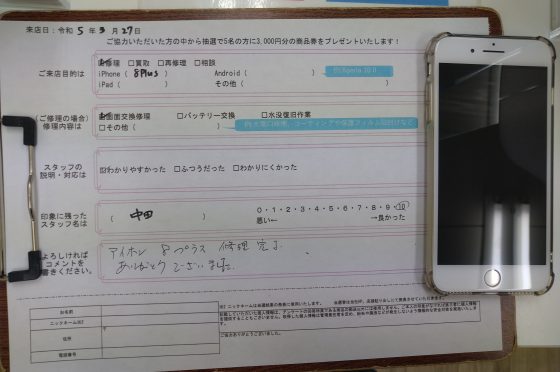 来店日：令和 5 年 3 月 27日
ご協力いただいた方の中から抽選で5名の方に3,000円分の商品券をプレゼントいたします！
ご来店目的は
☑修理 □買取 □再修理 □相談
iPhone ( 8Plus ) Android ( )
iPad ( ) その他 ( )
例）Xperia 10 Ⅱ
(ご修理の場合)
修理内容は
☑画面交換修理 □バッテリー交換 □水没復旧作業
□その他 ( )
スタッフの
説明・対応は
☑わかりやすかった □ふつうだった □わかりにくかった
印象に残った
スタッフ名は
( 中田 )
0・1・2・3・4・5・6・7・8・9・10
悪い← →良かった
よろしければ
コメントを
お書きください。
アイホン 8プラス 修理完了
ありがとうございました。
お名前
ニックネーム※2
住所
電話番号
ご協力ありがとうございました。